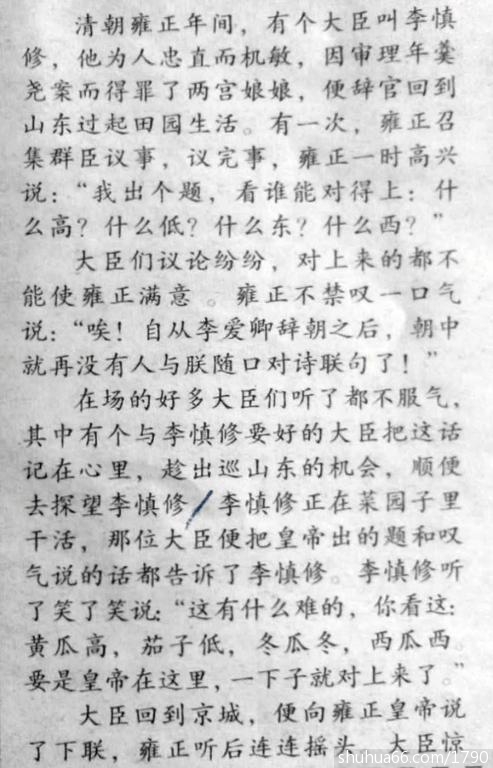 清朝雍正年间，有个大臣叫李慎
修，他为人忠直而机敏，因审理年羹
尧案而得罪了两宫娘娘，便辞官回到
山东过起田园生活。有一次，雍正召
集群臣议事，议完事，雍正一时高兴
说：“我出个题，看谁能对得上：什
么高？什么低？什么东？什么西？”
大臣们议论纷纷，对上来的都不
能使雍正满意。雍正不禁叹一口气
说：“唉！自从李爱卿辞朝之后，朝中
就再没有人与朕随口对诗联句了！”
在场的好多大臣们听了都不服气，
其中有个与李慎修要好的大臣把这话
记在心里，趁出巡山东的机会，顺便
去探望李慎修／李慎修正在菜园子里
干活，那位大臣便把皇帝出的题和叹
气说的话都告诉了李慎修。李慎修听
了笑了笑说：“这有什么难的，你看这：
黄瓜高，茄子低，冬瓜冬，西瓜西。
要是皇帝在这里，一下子就对上来了。”
大臣回到京城，便向雍正皇帝说
了下联，雍正听后连连摇头，大臣惊
shuhua66.com/1790